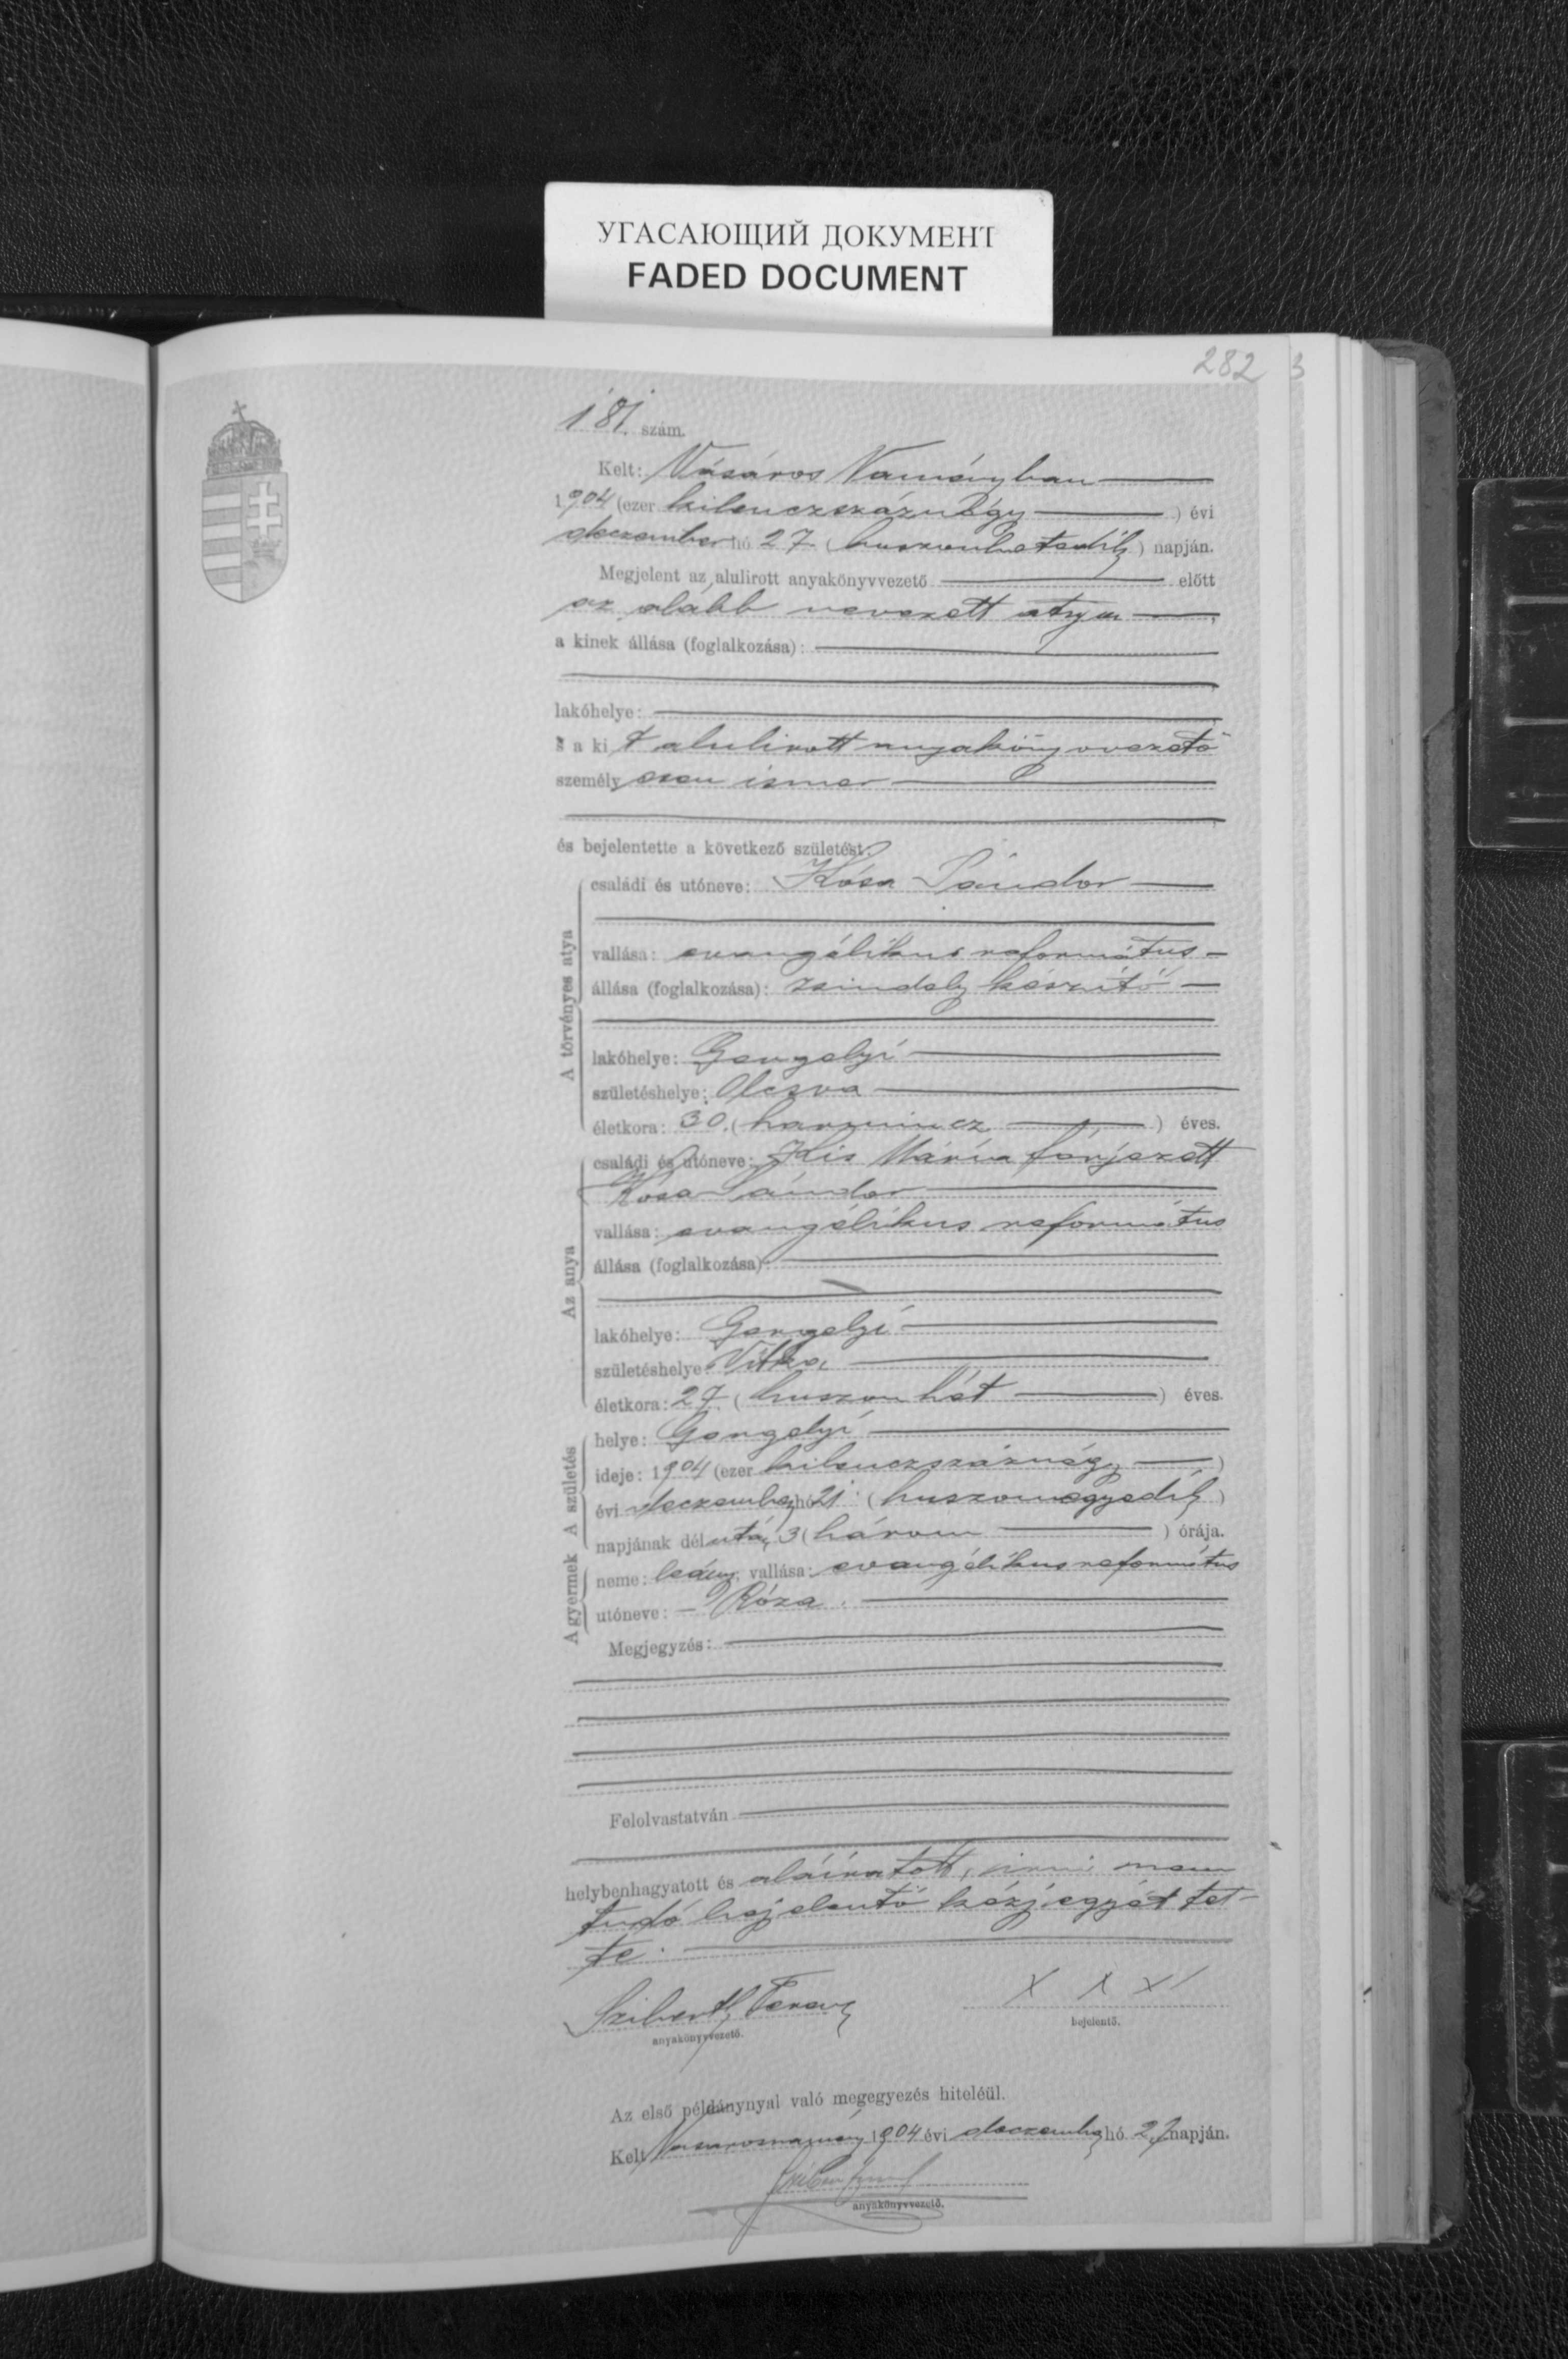 УГАСАЮЩИЙ ДОКУМЕНТ
FADED DOCUMENT
282 3
181. szám.
Kelt: Vásáros Naményban
1904 (ezer kilenczszáznégy) évi
deczember hó 27 (huszonhetedik) napján.
Megjelent az alulirott anyakönyvvezető előtt
az alább nevezett atya,
a kinek állása (foglalkozása):
lakóhelye:
s a ki t alulirott anyakönyvvezető
személyesen ismer
és bejelentette a következő születést:
A törvényes atya
családi és utóneve: Kósa Sándor
vallása: evangélikus református
állása (foglalkozása): zsindely készitő
lakóhelye: Gergelyi
születéshelye: Olcsva
életkora: 30. (harmincz) éves.
Az anya
családi és utóneve: Kis Mária férjezett
Kósa Sándor
vallása: evangélikus református
állása (foglalkozása):
lakóhelye: Gergelyi
születéshelye: Vitka
életkora: 27. (huszonhét) éves.
A születés
helye: Gergelyi
ideje: 1904 (ezer kilenczszáznégy)
évi deczember hó 21 (huszonegyedik)
napjának délután 3 (három) órája.
A gyermek
neme: leány; vallása: evangélikus református
utóneve: Róza.
Megjegyzés:
Felolvastatván
helybenhagyatott és aláiratott, irni nem
tudó bejelentő kézjegyét tet-
te.
Sziberth Ferencz X X X
anyakönyvvezető. bejelentő.
Az első példánynyal való megegyezés hiteléül.
Kelt Vásárosnamény 1904 évi deczember hó 27 napján.
anyakönyvvezető.